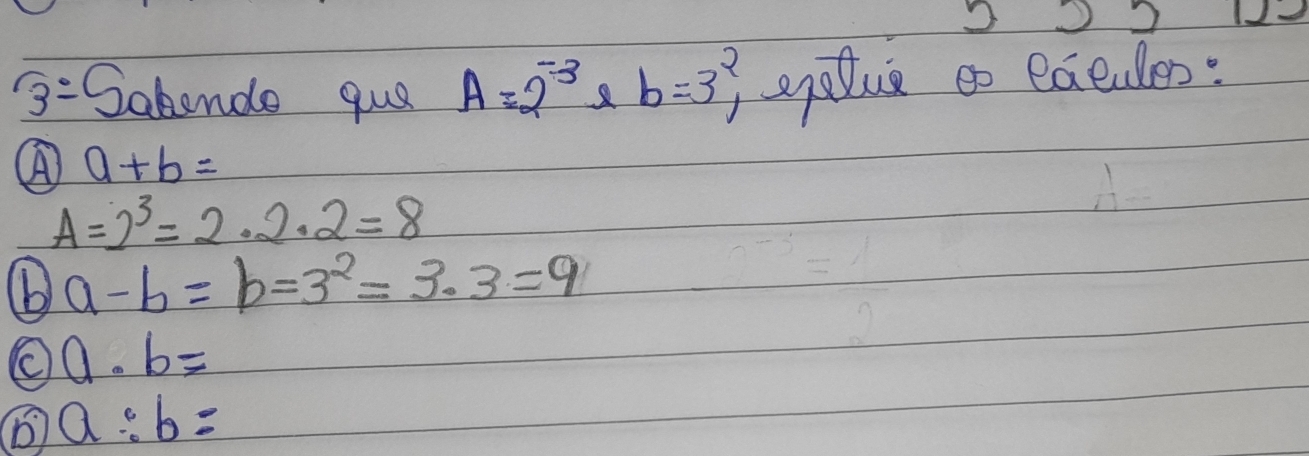 3=Sabendo que A=2⁻³ e b=3², efetue os cálculos:
Ⓐ a+b=
A=2³=2.2.2=8
ⓑ a-b= b=3²=3.3=9
Ⓒ a.b=
Ⓓ a÷b=